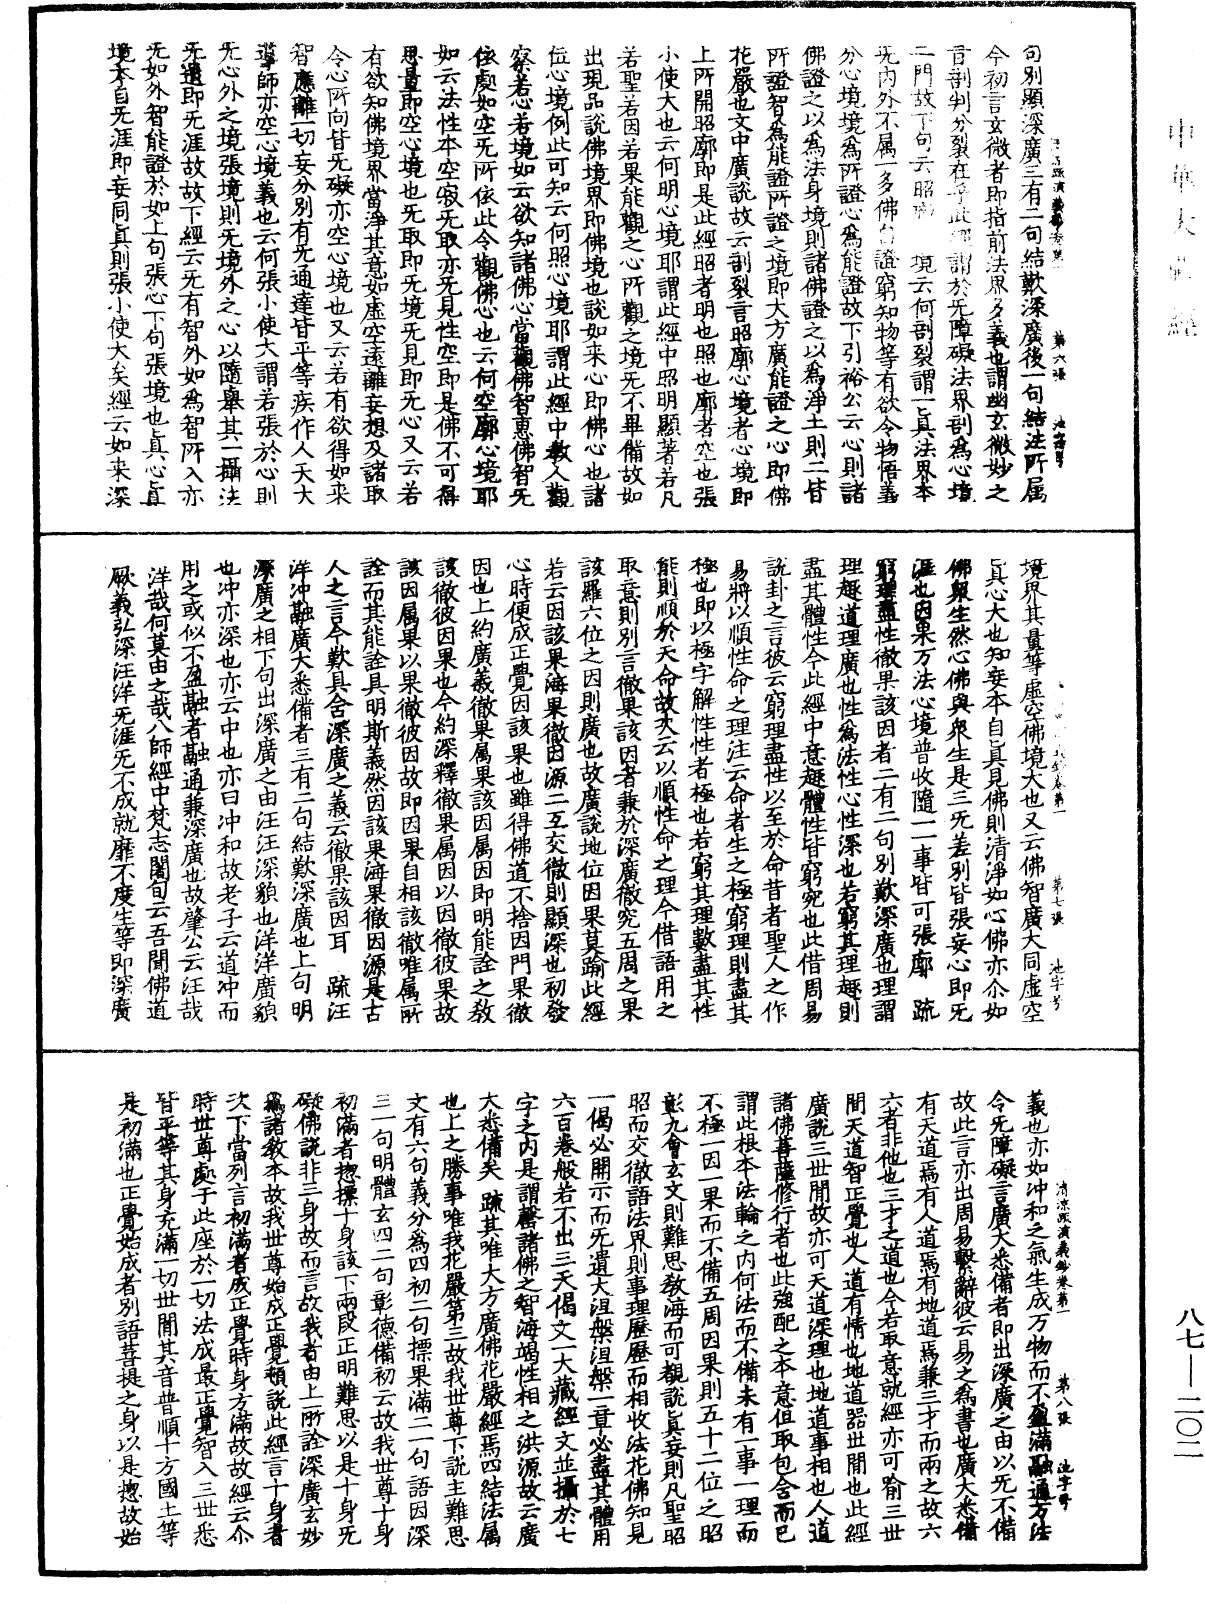 中華大藏經
句別顯深廣三有二句結歎深廣後一句結法所属
今初言玄微者即指前法界多義也謂幽玄微妙之
言剖判分裂在乎此經謂於无障礙法界剖為心境
二門故下句云昭廓 境云何剖裂謂一真法界本
无內外不属一多佛自證窮知物等有欲令物悟義
分心境境為所證心為能證故下引裕公云心則諸
佛證之以為法身境則諸佛證之以為淨土則二皆
所證智為能證所證之境即大方廣能證之心即佛
花嚴也文中廣說故云剖裂言昭廓心境者心境即
上所開昭廓即是此經昭者明也照也廓者空也張
小使大也云何明心境耶謂此經中照明顯著若凡
若聖若因若果能觀之心所觀之境无不畢備故如
出現品說佛境界即佛境也說如来心即佛心也諸
位心境例此可知云何照心境耶謂此經中教人觀
察若心若境如云欲知諸佛心當觀佛智惠佛智无
依處如空无所依此令觀佛心也云何空廓心境耶
如云法性本空寂无取亦无見性空即是佛不可得
思量即空心境也无取即无境无見即无心又云若
有欲知佛境界當淨其意如虛空遠離妄想及諸取
令心所向皆无礙亦空心境也又云若有欲得如来
智應離一切妄分別有无通達皆平等疾作人天大
導師亦空心境義也云何張小使大謂若張於心則
无心外之境張境則无境外之心以隨舉其一攝法
无遺即无涯故故下經云无有智外如為智所入亦
无如外智能證於如上句張心下句張境也真心真
境本自无涯即妄同真則張小使大矣經云如来深
第六張
境界其量等虛空佛境大也又云佛智廣大同虛空
真心大也知妄本自真見佛則清淨如心佛亦尒如
佛眾生然心佛與眾生是三无差別皆張妄心即无
涯也因果万法心境普收隨一一事皆可張廓 疏
窮理盡性徹果該因者二有二句別歎深廣也理謂
理趣道理廣也性為法性心性深也若窮其理趣則
盡其體性今此經中意趣體性皆窮究也此借周易
說卦之言彼云窮理盡性以至於命昔者聖人之作
易將以順性命之理注云命者生之極窮理則盡其
極也即以極字解性性者極也若窮其理數盡其性
能則順於天命故次云以順性命之理今借語用之
取意則別言徹果該因者兼於深廣徹究五周之果
該羅六位之因則廣也故廣說地位因果莫踰此經
若云因該果海果徹因源二互交徹則顯深也初發
心時便成正覺因該果也雖得佛道不捨因門果徹
因也上約廣義徹果属果該因属因即明能詮之教
該徹彼因果也今約深釋徹果属因以因徹彼果故
該因属果以果徹彼因故即因果自相該徹唯属所
詮而其能詮具明斯義然因該果海果徹因源是古
人之言今歎具含深廣之義云徹果該因耳 疏汪
洋冲融廣大悉備者三有二句結歎深廣也上句明
深廣之相下句出深廣之由汪汪深貌也洋洋廣貌
也冲亦深也亦云中也亦曰冲和故老子云道冲而
用之或似不盈融者融通兼深廣也故肇公云汪哉
洋哉何莫由之哉八師經中梵志闍旬云吾聞佛道
厥義弘深汪洋无涯无不成就靡不度生等即深廣
第七張
池字号
義也亦如冲和之氣生成万物而不盈滿融通万法
令无障礙言廣大悉備者即出深廣之由以无不備
故此言亦出周易繫辭彼云易之為書也廣大悉備
有天道焉有人道焉有地道焉兼三才而兩之故六
六者非他也三才之道也今若取意就經亦可喻三世
間天道智正覺也人道有情也地道器世間也此經
廣說三世間故亦可天道深理也地道事相也人道
諸佛菩薩修行者也此強配之本意但取包含而已
謂此根本法輪之內何法而不備未有一事一理而
不極一因一果而不備五周因果則五十二位之昭
彰九會玄文則難思教海而可觀說真妄則凡聖昭
昭而交徹語法界則事理歷歷而相收法花佛知見
一偈必開示而无遺大涅槃涅槃一章必盡其體用
六百卷般若不出三天偈文一大藏經文並攝於七
字之內是謂罄諸佛之智海竭性相之洪源故云廣
大悉備矣 疏其唯大方廣佛花嚴經焉四結法属
也上之勝事唯我花嚴第三故我世尊下說主難思
文有六句義分為四初二句摽果滿二一句語因深
三一句明體玄四二句彰德備初云故我世尊十身
初滿者揔摽十身該下兩段正明難思以是十身无
礙佛說非三身故而言故我者由上所詮深廣玄妙
為諸教本故我世尊始成正覺頓說此經言十身者
次下當列言初滿者成正覺時身方滿故故經云尒
時世尊處于此座於一切法成最正覺智入三世悉
皆平等其身充滿一切世間其音普順十方國土等
是初滿也正覺始成者別語菩提之身以是揔故始
清凉疏演義鈔卷第一
第八張
池字号
八七—二〇二